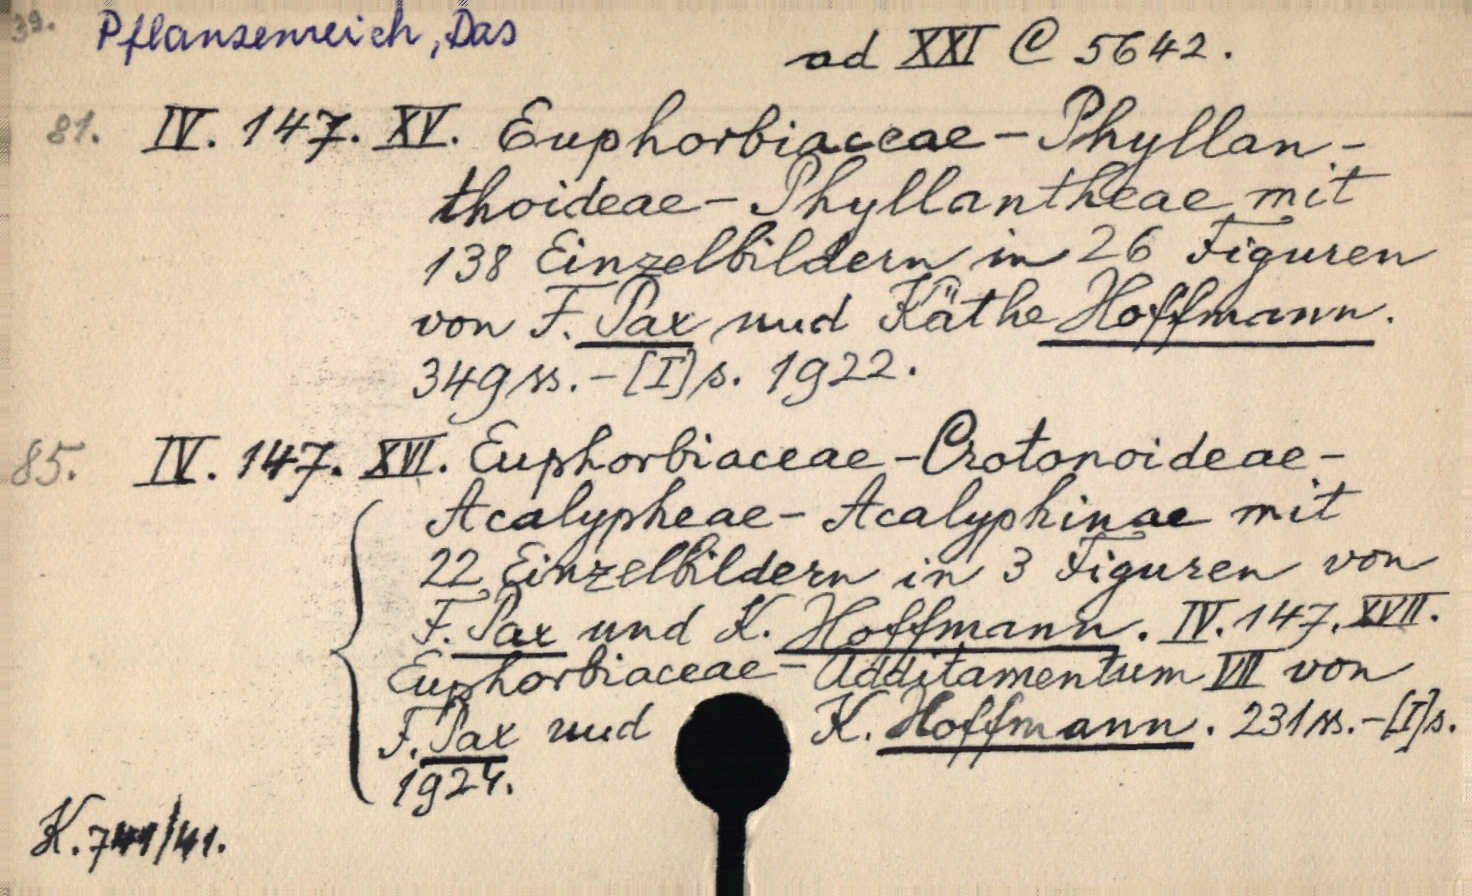 39. Pflanzenreich, Das
ad XXI C 5642.
81. IV. 147. XV. Euphorbiaceae-Phyllan-
thoideae-Phyllantheae mit
138 Einzelbildern in 26 Figuren
von F. Pax und Käthe Hoffmann.
349 ss. - [I] s. 1922.
85. IV. 147. XVI. Euphorbiaceae-Crotonoideae-
Acalypheae-Acalyphinae mit
22 Einzelbildern in 3 Figuren von
F. Pax und K. Hoffmann. IV. 147. XVII.
Euphorbiaceae-Additamentum VII von
F. Pax und K. Hoffmann. 231 ss. - [I] s.
1924.
K. 741/41.